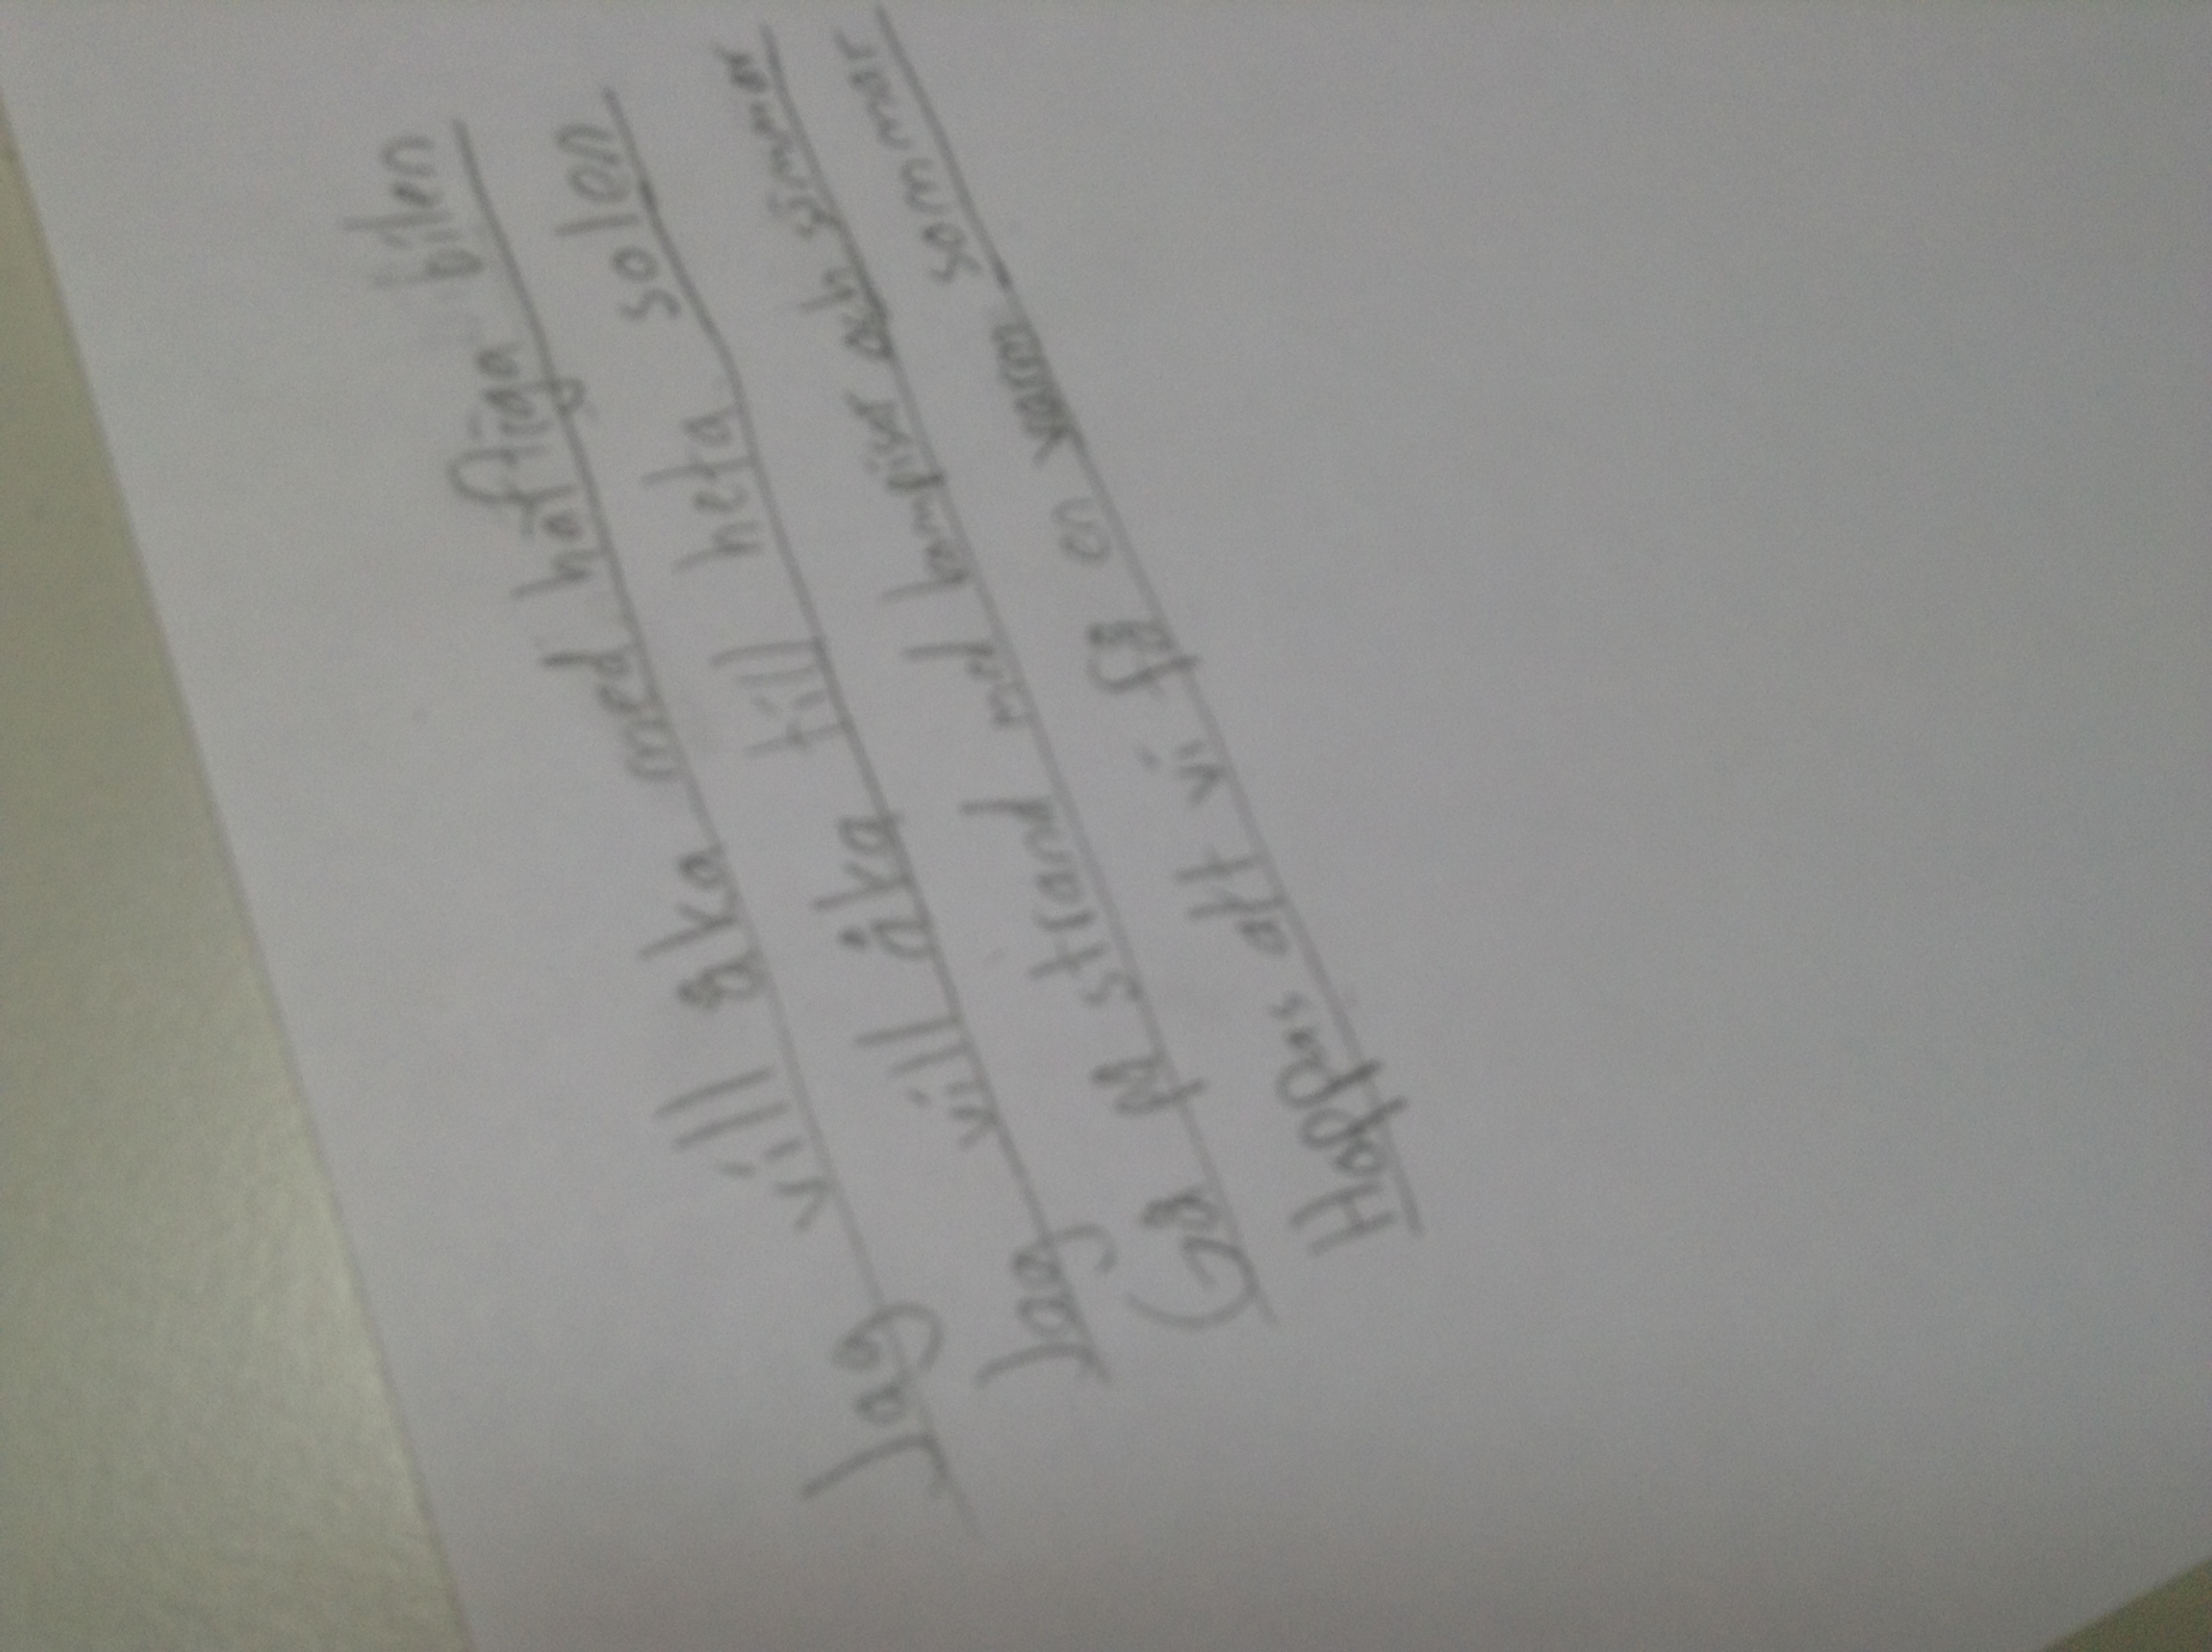 Jag vill åka med häftiga bilen
Jag vill åka till heta solen
Gå på strand med kompisar och simmar
Hoppas att vi få en varm sommar